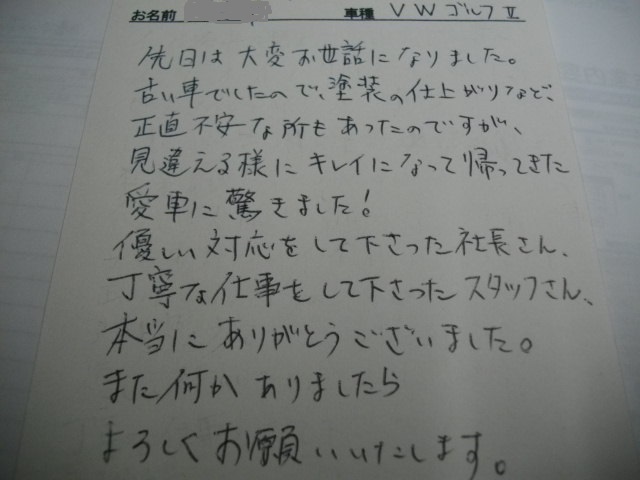 お名前 車種 VW ゴルフⅡ
先日は大変お世話になりました。
古い車でしたので、塗装の仕上がりなど、
正直不安な所もあったのですが、
見違える様にキレイになって帰ってきた
愛車に驚きました!
優しい対応をして下さった社長さん、
丁寧な仕事をして下さったスタッフさん、
本当にありがとうございました。
また何かありましたら
よろしくお願いいたします。